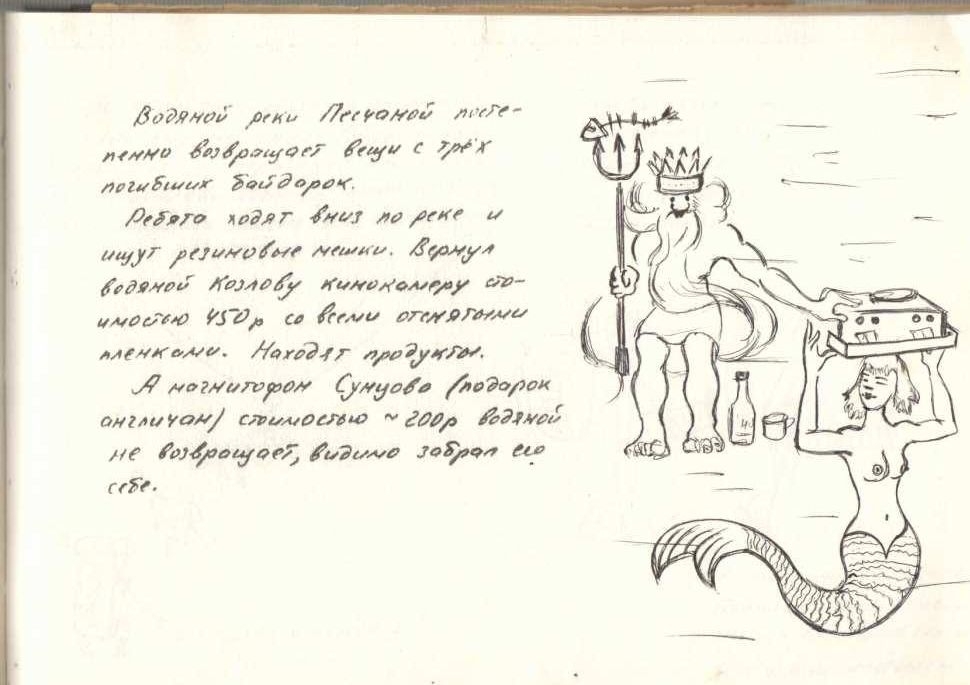 Водяной реки Песчаной посте-
пенно возвращает вещи с трёх
погибших байдарок.
Ребята ходят вниз по реке и
ищут резиновые мешки. Вернул
водяной Козлову кинокамеру сто-
имостью 450р со всеми отснятыми
пленками. Находят продукты.
А магнитофон Сунцова (подарок
англичан) стоимостью ~200р водяной
не возвращает, видимо забрал его
себе.